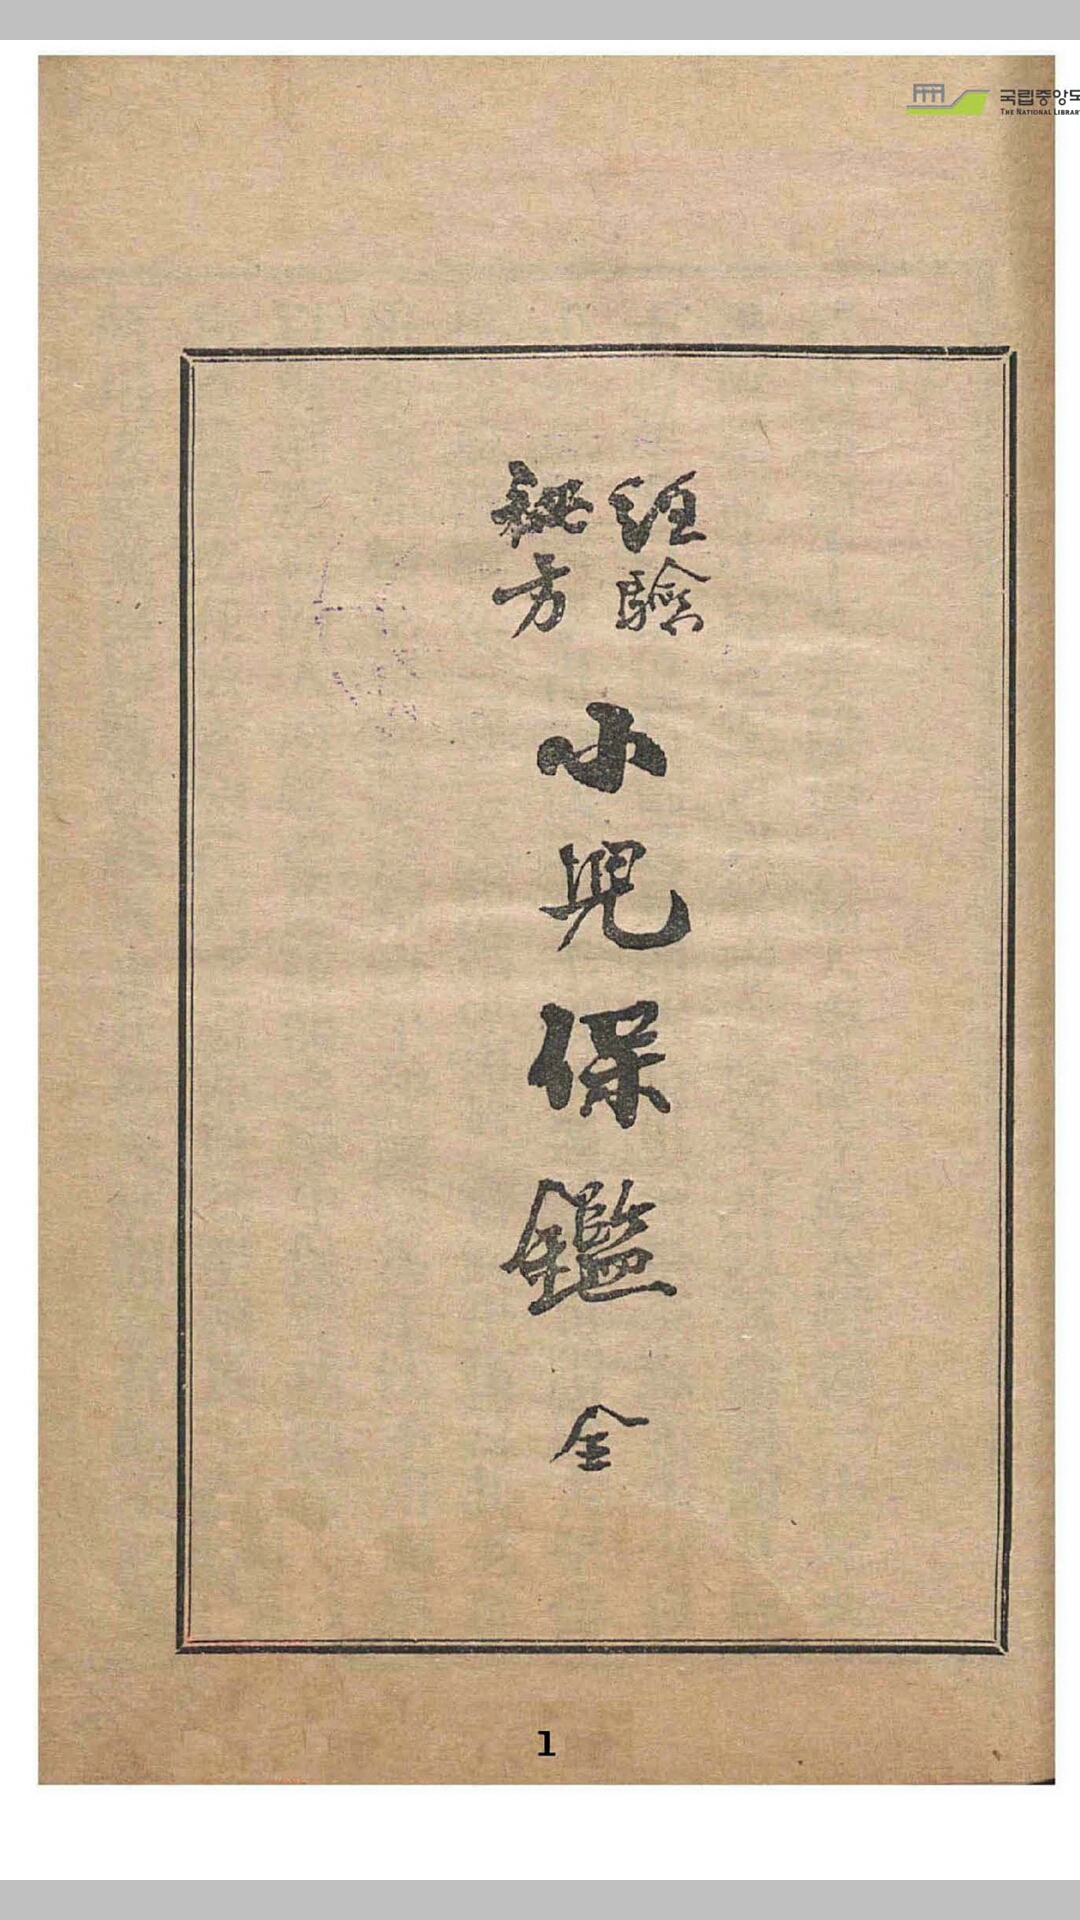 국립중앙도
THE NATIONAL LIBRARY
經驗
秘方
小兒保鑑
全
1